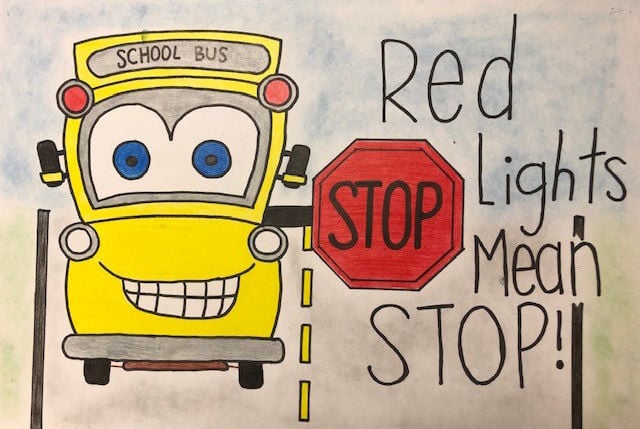 SCHOOL BUS
STOP
Red
Lights
Mean
STOP!